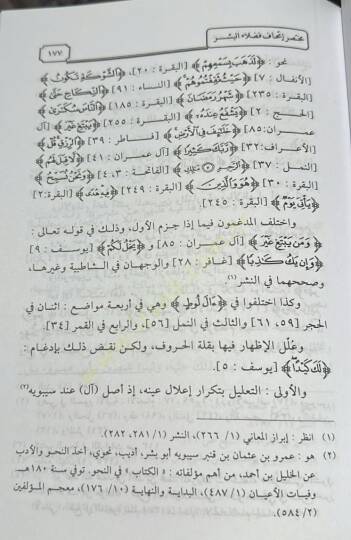 مختصر إتحاف فضلاء البشر
١٧٧
نحو: ﴿لَذَهَبَ بِسَمْعِهِمْ﴾ [البقرة: ٢٠]، ﴿الشَّوْكَةِ تَكُونُ﴾
[الأنفال: ٧] ﴿حَيْثُ ثَقِفْتُمُوهُمْ﴾ [النساء: ٩١] ﴿النِّكَاحِ حَتَّى﴾
[البقرة: ٢٣٥] ﴿شَهْرُ رَمَضَانَ﴾ [البقرة: ١٨٥] ﴿النَّاسَ سُكَارَى﴾
[الحج: ٢] ﴿يَشْفَعُ عِنْدَهُ﴾ [البقرة: ٢٥٥] ﴿يَبْتَغِ غَيْرَ﴾ [آل
عمران: ٨٥] ﴿خَلَائِفَ فِي الْأَرْضِ﴾ [فاطر: ٣٩] ﴿الرِّزْقِ قُلْ﴾
[الأعراف: ٣٢] ﴿رَبَّكَ كَثِيرًا﴾ [آل عمران: ٤١] ﴿لَا قِبَلَ لَهُمْ﴾
[النمل: ٣٧] ﴿الرَّحِيمِ مَالِكِ﴾ [الفاتحة: ٣، ٤] ﴿وَنَحْنُ نُسَبِّحُ﴾
[البقرة: ٣٠] ﴿هُوَ وَالَّذِينَ﴾ [البقرة: ٢٤٩] ﴿فِيهِ هُدًى﴾ [البقرة: ٢]
﴿يَأْتِيَ يَوْمٌ﴾ [البقرة: ٢٤٥].
واختلف المدغمون فيما إذا جزم الأول، وذلك في قوله تعالى:
﴿وَمَنْ يَبْتَغِ غَيْرَ﴾ [آل عمران: ٨٥] و﴿يَخْلُ لَكُمْ﴾ [يوسف: ٩]
﴿وَإِنْ يَكُ كَاذِبًا﴾ [غافر: ٢٨] والوجهان في الشاطبية وغيرها،
وصححهما في النشر(١).
وكذا اختلفوا في ﴿آلَ لُوطٍ﴾ وهي في أربعة مواضع: اثنان في
الحجر [٥٩، ٦١] والثالث في النمل [٥٦]، والرابع في القمر [٣٤].
وعُلّل الإظهار فيها بقلة الحروف، ولكن نقض ذلك بإدغام:
﴿لَكَ كَيْدًا﴾ [يوسف: ٥].
والأولى: التعليل بتكرار إعلال عينه، إذ أصل (آل) عند سيبويه(٢)
(١) انظر: إبراز المعاني (١/ ٢٦٦)، النشر (١/ ٢٨١، ٢٨٢).
(٢) هو: عمرو بن عثمان بن قنبر سيبويه أبو بشر، أديب، نحوي، أخذ النحو والأدب
عن الخليل بن أحمد، من أهم مؤلفاته: «الكتاب» في النحو. توفي سنة ١٨٠هـ.
وفيات الأعيان (١/ ٤٨٧)، البداية والنهاية (١٠/ ١٧٦)، معجم المؤلفين
(٢/ ٥٨٤).